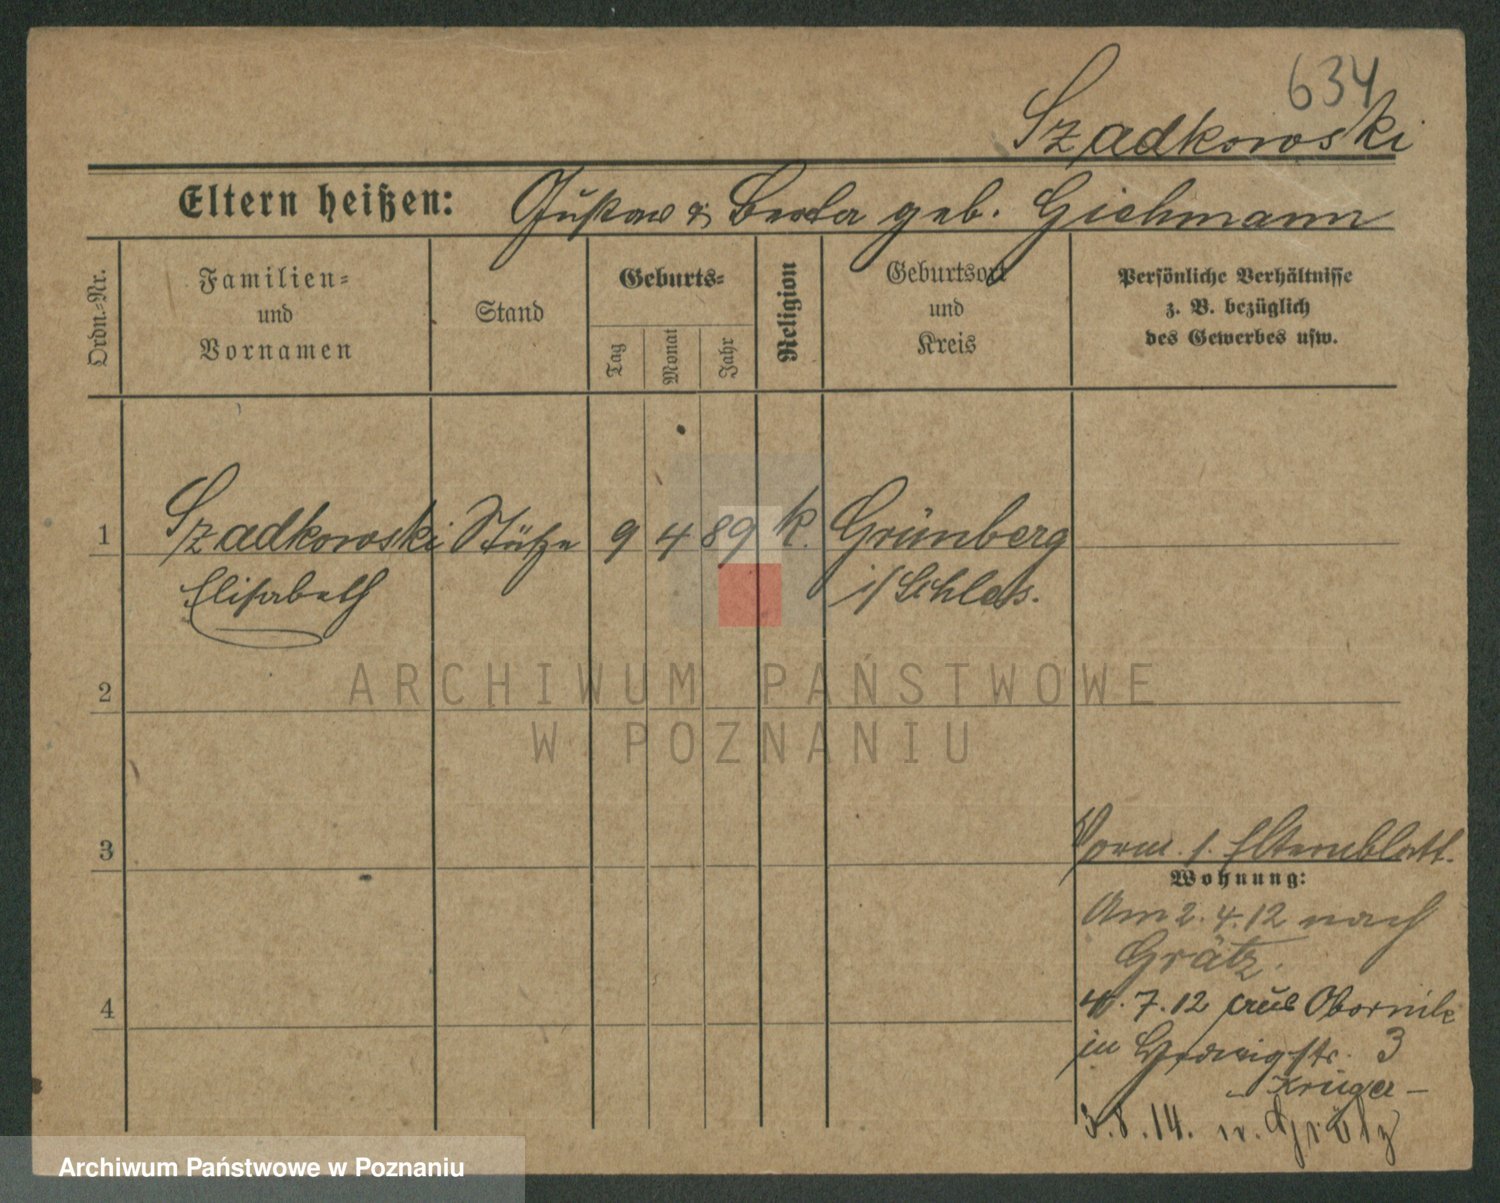 634
Szadkowski
Eltern heißen: Gustav & Berta geb. Gichmann
Ordn.-Nr.
Familien-
und
Vornamen
Stand
Geburts-
Tag
Monat
Jahr
Religion
Geburtsort
und
Kreis
Persönliche Verhältnisse
z. B. bezüglich
des Gewerbes usw.
1 Szadkowski Stütze 9 4 89 k. Grünberg
Elisabeth i/Schles.
2
3
Vorm. s. Elternblatt.
Wohnung:
Am 2.4.12 nach
Grätz.
4
7.12 aus Obornik
in Hedwigstr. 3
Krüger -
3.8.14. n. Grätz
ARCHIWUM PAŃSTWOWE
W POZNANIU
Archiwum Państwowe w Poznaniu